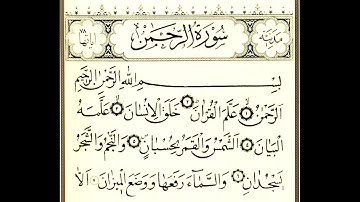 مدنية سورة الرحمن آياتها
بسم الله الرحمن الرحيم
الرحمن ۝ علم القرآن ۝ خلق الإنسان ۝ علمه
البيان ۝ الشمس والقمر بحسبان ۝ والنجم والشجر
يسجدان ۝ والسماء رفعها ووضع الميزان ۝ ألا